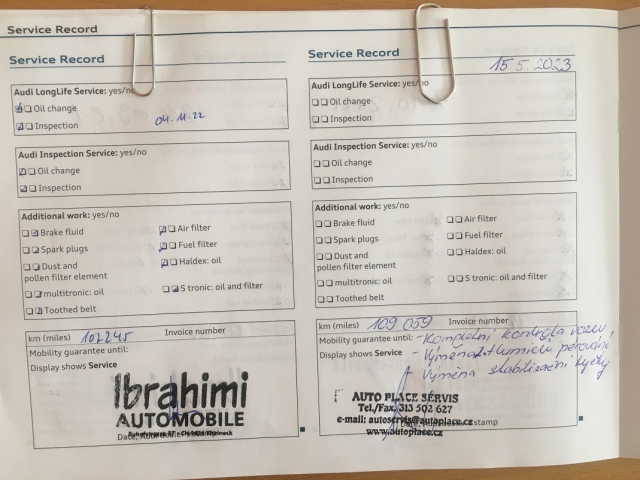 Service Record
Service Record
Audi LongLife Service: yes/no
Oil change
Inspection
04.11.22
Audi Inspection Service: yes/no
Oil change
Inspection
Additional work: yes/no
Brake fluid
Air filter
Spark plugs
Fuel filter
Dust and
pollen filter element
Haldex: oil
multitronic: oil
S tronic: oil and filter
Toothed belt
km (miles) 107245 Invoice number
Mobility guarantee until:
Display shows Service
Ibrahimi
AUTOMOBILE
Service Record
15.5.2023
Audi LongLife Service: yes/no
Oil change
Inspection
Audi Inspection Service: yes/no
Oil change
Inspection
Additional work: yes/no
Brake fluid
Air filter
Spark plugs
Fuel filter
Dust and
pollen filter element
Haldex: oil
multitronic: oil
S tronic: oil and filter
Toothed belt
km (miles) 109 059 Invoice number
Mobility guarantee until: - Kompletní kontrola vozu,
Display shows Service - Výměna tlumičů pérování
Výměna stabilizační tyčky
AUTO PLACE SERVIS
Tel./Fax: 313 502 627
e-mail: autoservis@autoplace.cz
www.autoplace.cz
stamp